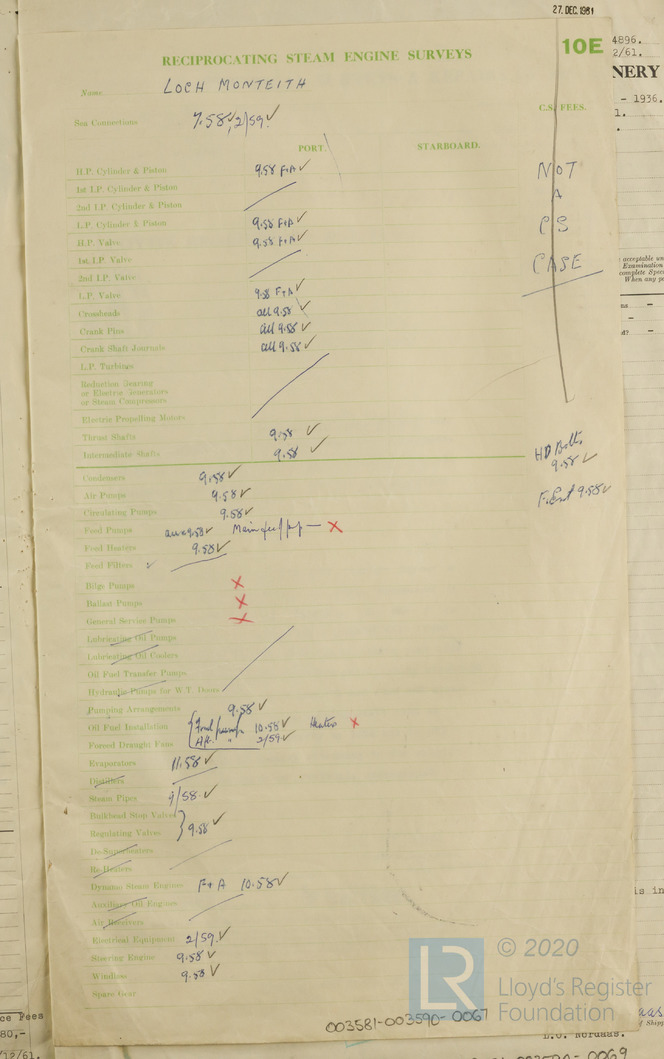 27. DEC. 1961
4896.
2/61.
NERY
- 1936.
1.
10E
RECIPROCATING STEAM ENGINE SURVEYS
Name LOCH MONTEITH
C.S. FEES.
Sea Connections 7.58 ✓, 2/59 ✓
PORT. STARBOARD.
H.P. Cylinder & Piston 9.58 F+A ✓
NOT
1st I.P. Cylinder & Piston
A
2nd I.P. Cylinder & Piston
L.P. Cylinder & Piston 9.58 F+A ✓
CS
H.P. Valve 9.58 F+A ✓
1st I.P. Valve
CASE
2nd I.P. Valve
L.P. Valve 9.58 F+A ✓
Crossheads all 9.58 ✓
Crank Pins all 9.58 ✓
Crank Shaft Journals all 9.58 ✓
L.P. Turbines
Reduction Gearing
or Electric Generators
or Steam Compressors
Electric Propelling Motors
Thrust Shafts 9.58 ✓
Intermediate Shafts 9.58 ✓
HD Bolts
9.58 ✓
Condensers 9.58 ✓
Air Pumps 9.58 ✓
F. Ent 9.58 ✓
Circulating Pumps 9.58 ✓
Feed Pumps aux 9.58 ✓ Main feed pp — ×
Feed Heaters 9.58 ✓
Feed Filters ✓
Bilge Pumps ×
Ballast Pumps ×
General Service Pumps ×
Lubricating Oil Pumps
Lubricating Oil Coolers
Oil Fuel Transfer Pumps
Hydraulic Pumps for W.T. Doors
Pumping Arrangements 9.58 ✓
Oil Fuel Installation Fuel pump 10.58 ✓ Heater ×
Forced Draught Fans Htr. " 2/59 ✓
Evaporators 11.58 ✓
Distillers
Steam Pipes 9/58. ✓
Bulkhead Stop Valves
Regulating Valves } 9.58 ✓
De-Superheaters
Re-Heaters
Dynamo Steam Engines F+A 10.58 ✓
Auxiliary Oil Engines
Air Receivers
Electrical Equipment 2/59. ✓
Steering Engine 9.58 ✓
Windlass 9.58 ✓
Spare Gear
acceptable
Examination
complete
When any
is in
LR
© 2020
Lloyd's Register
Foundation
003581-003590-0067
ce Fees
80,-
/12/61.